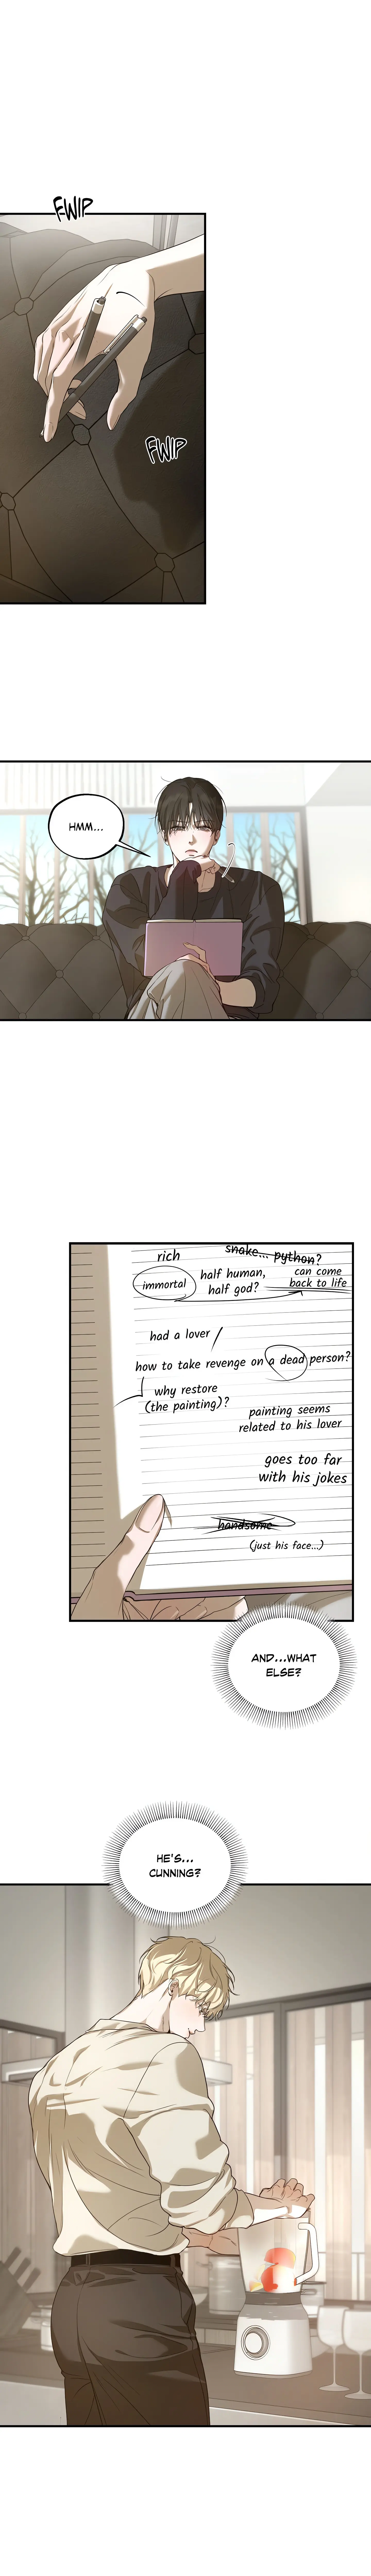 FWIP
FWIP
HMM...
rich
snake... python?
immortal
half human,
half god?
can come
back to life
had a lover
how to take revenge on a dead person?
why restore
(the painting)?
painting seems
related to his lover
goes too far
with his jokes
handsome
(just his face...)
AND...WHAT
ELSE?
HE'S...
CUNNING?